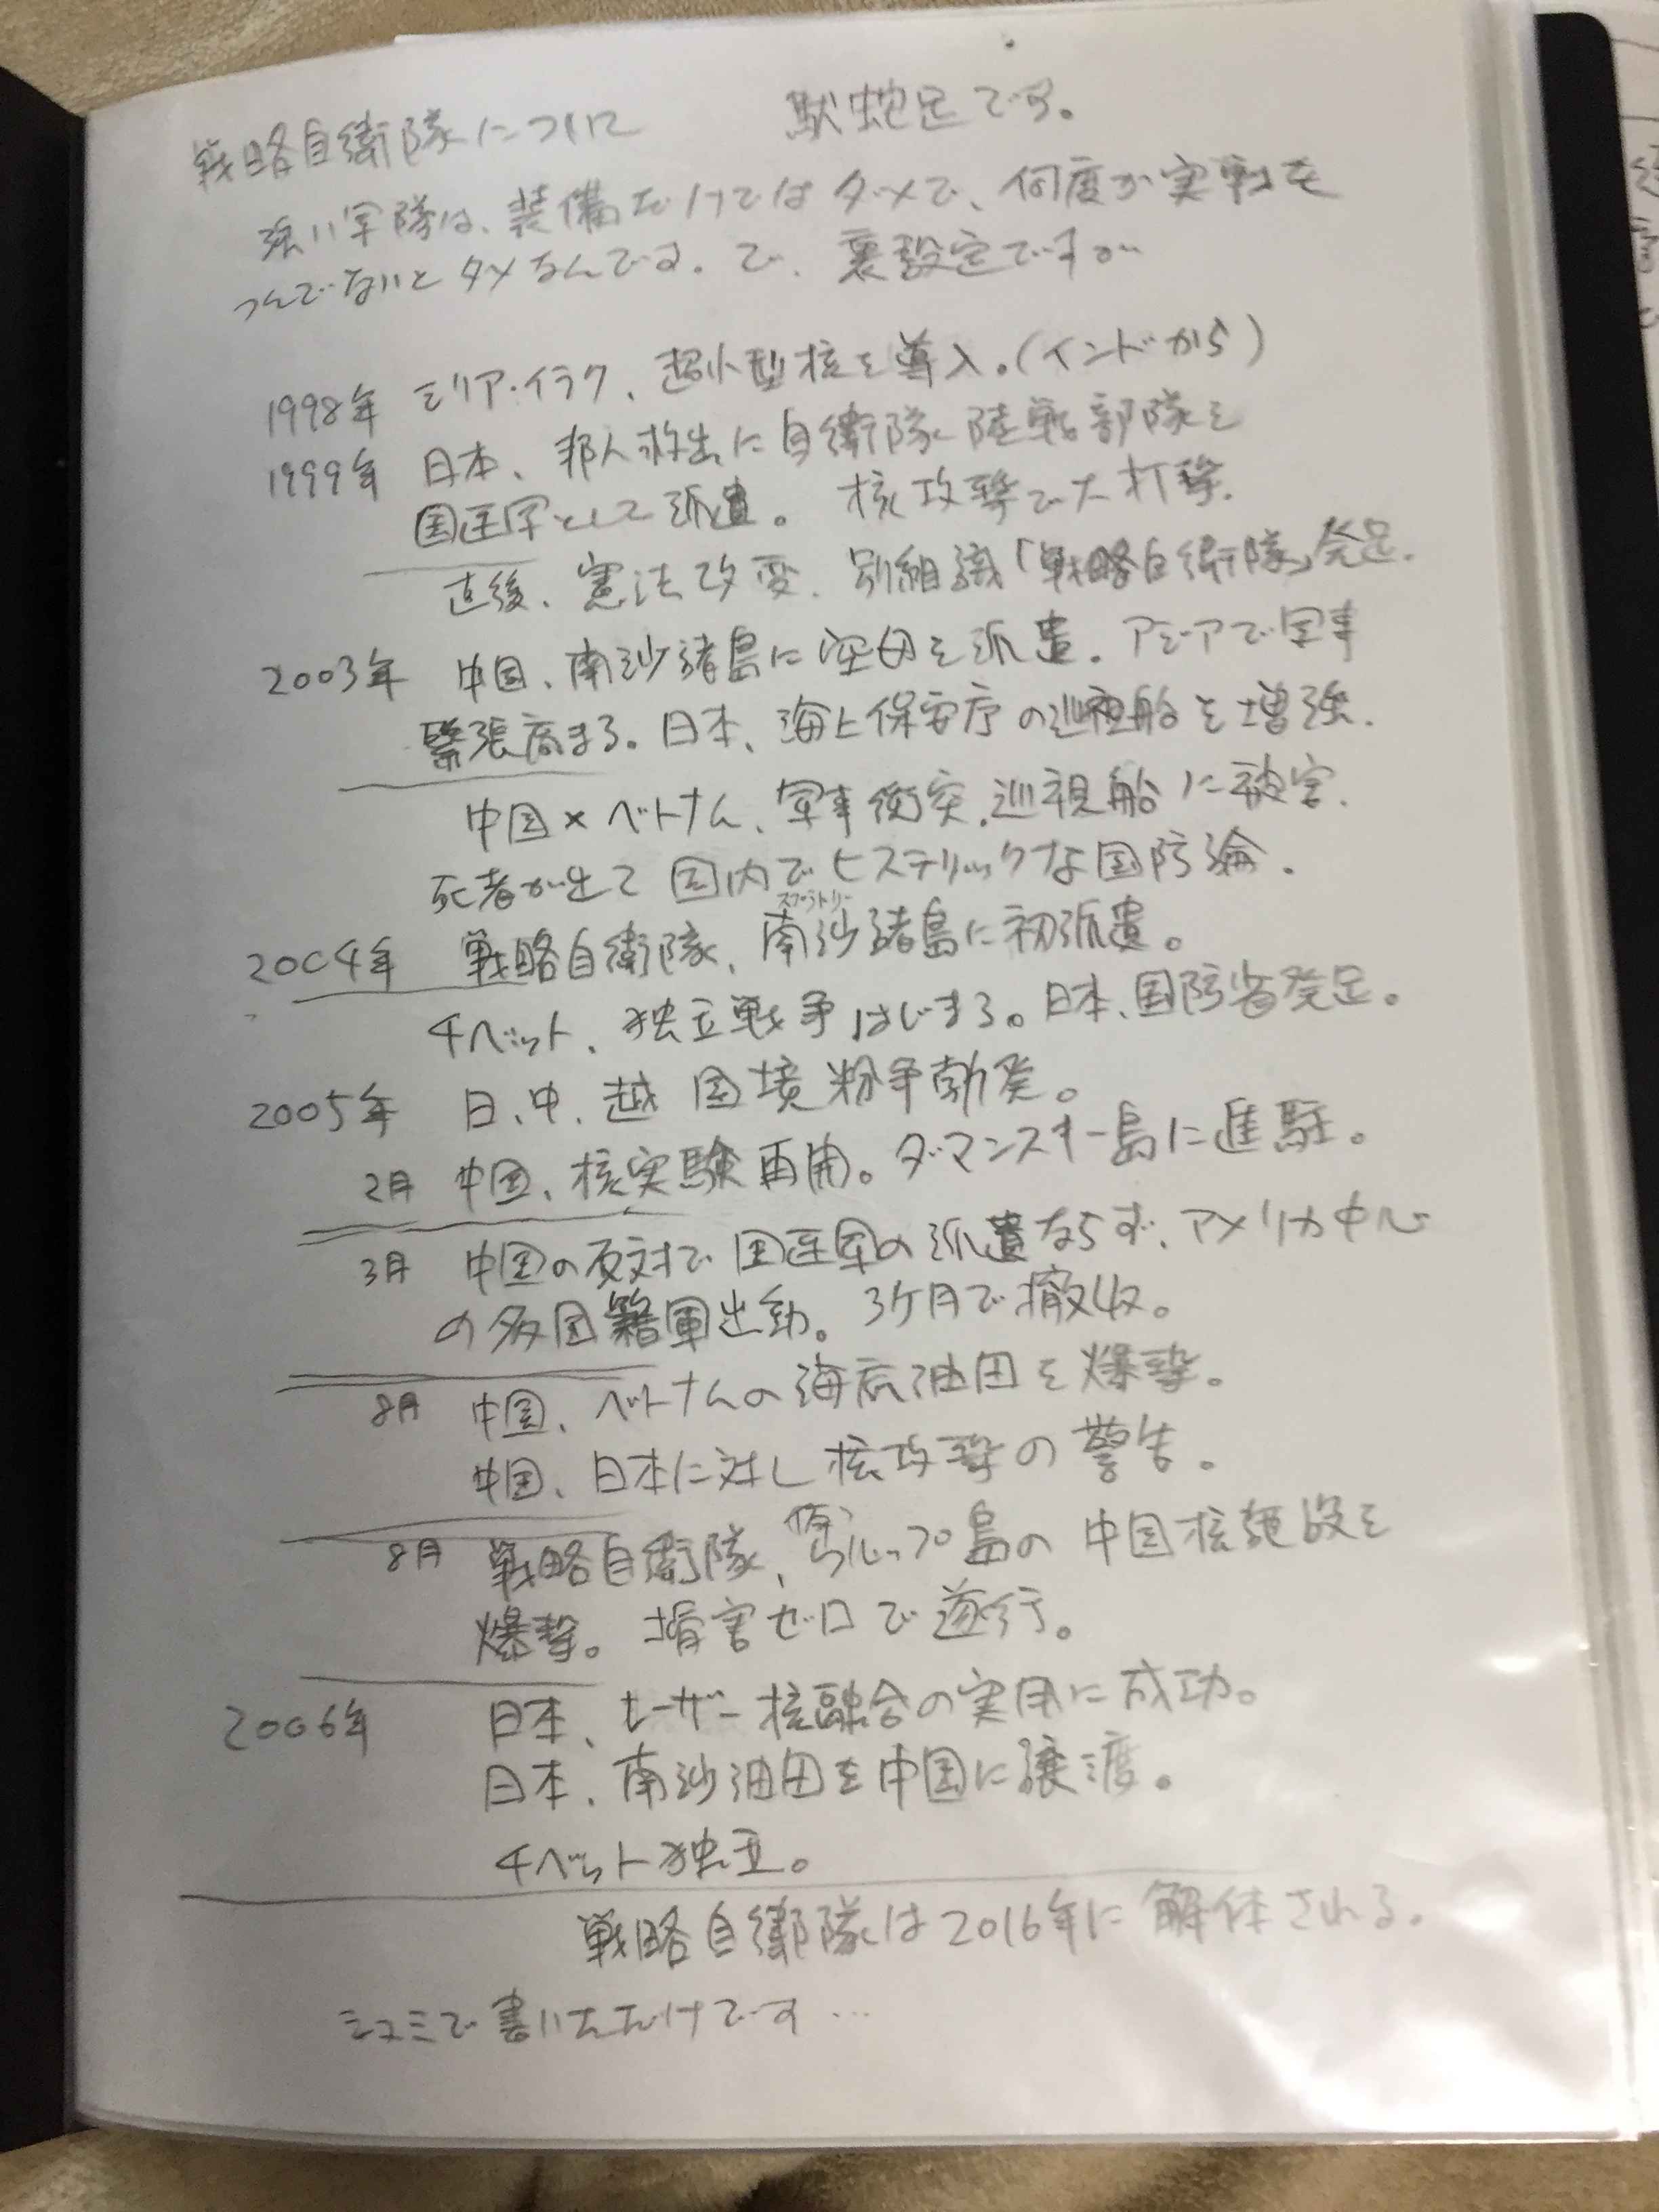 戦略自衛隊について　蛇足です。
強い軍隊は、装備だけではダメで、何度か実戦を
つんでないとダメなんです。で、裏設定ですが…
1998年　シリア・イラク、超小型核を導入。(インドから)
1999年　日本、邦人救出に自衛隊陸戦部隊を
国連軍として派遣。核攻撃で大打撃。
直後、憲法改変、別組織「戦略自衛隊」発足。
2003年　中国、南沙諸島に空母を派遣。アジアで軍事
緊張高まる。日本、海上保安庁の巡視船を増強。
中国×ベトナム、軍事衝突。巡視船に被害。
死者が出て国内でヒステリックな国防論。
スプラトリー
2004年　戦略自衛隊、南沙諸島に初派遣。
チベット、独立戦争はじまる。日本、国防省発足。
2005年　日、中、越　国境紛争勃発。
2月　中国、核実験再開。ダマンスキー島に進駐。
3月　中国の反対で国連軍の派遣ならず、アメリカ中心
の多国籍軍出動。3ケ月で撤収。
8月　中国、ベトナムの海底油田を爆撃。
中国、日本に対し核攻撃の警告。
8月　戦略自衛隊、ウルップ島の中国核施設を
爆撃。損害ゼロで遂行。
2006年　日本、レーザー核融合の実用に成功。
日本、南沙油田を中国に譲渡。
チベット独立。
戦略自衛隊は2016年に解体される。
シュミで書いただけです…